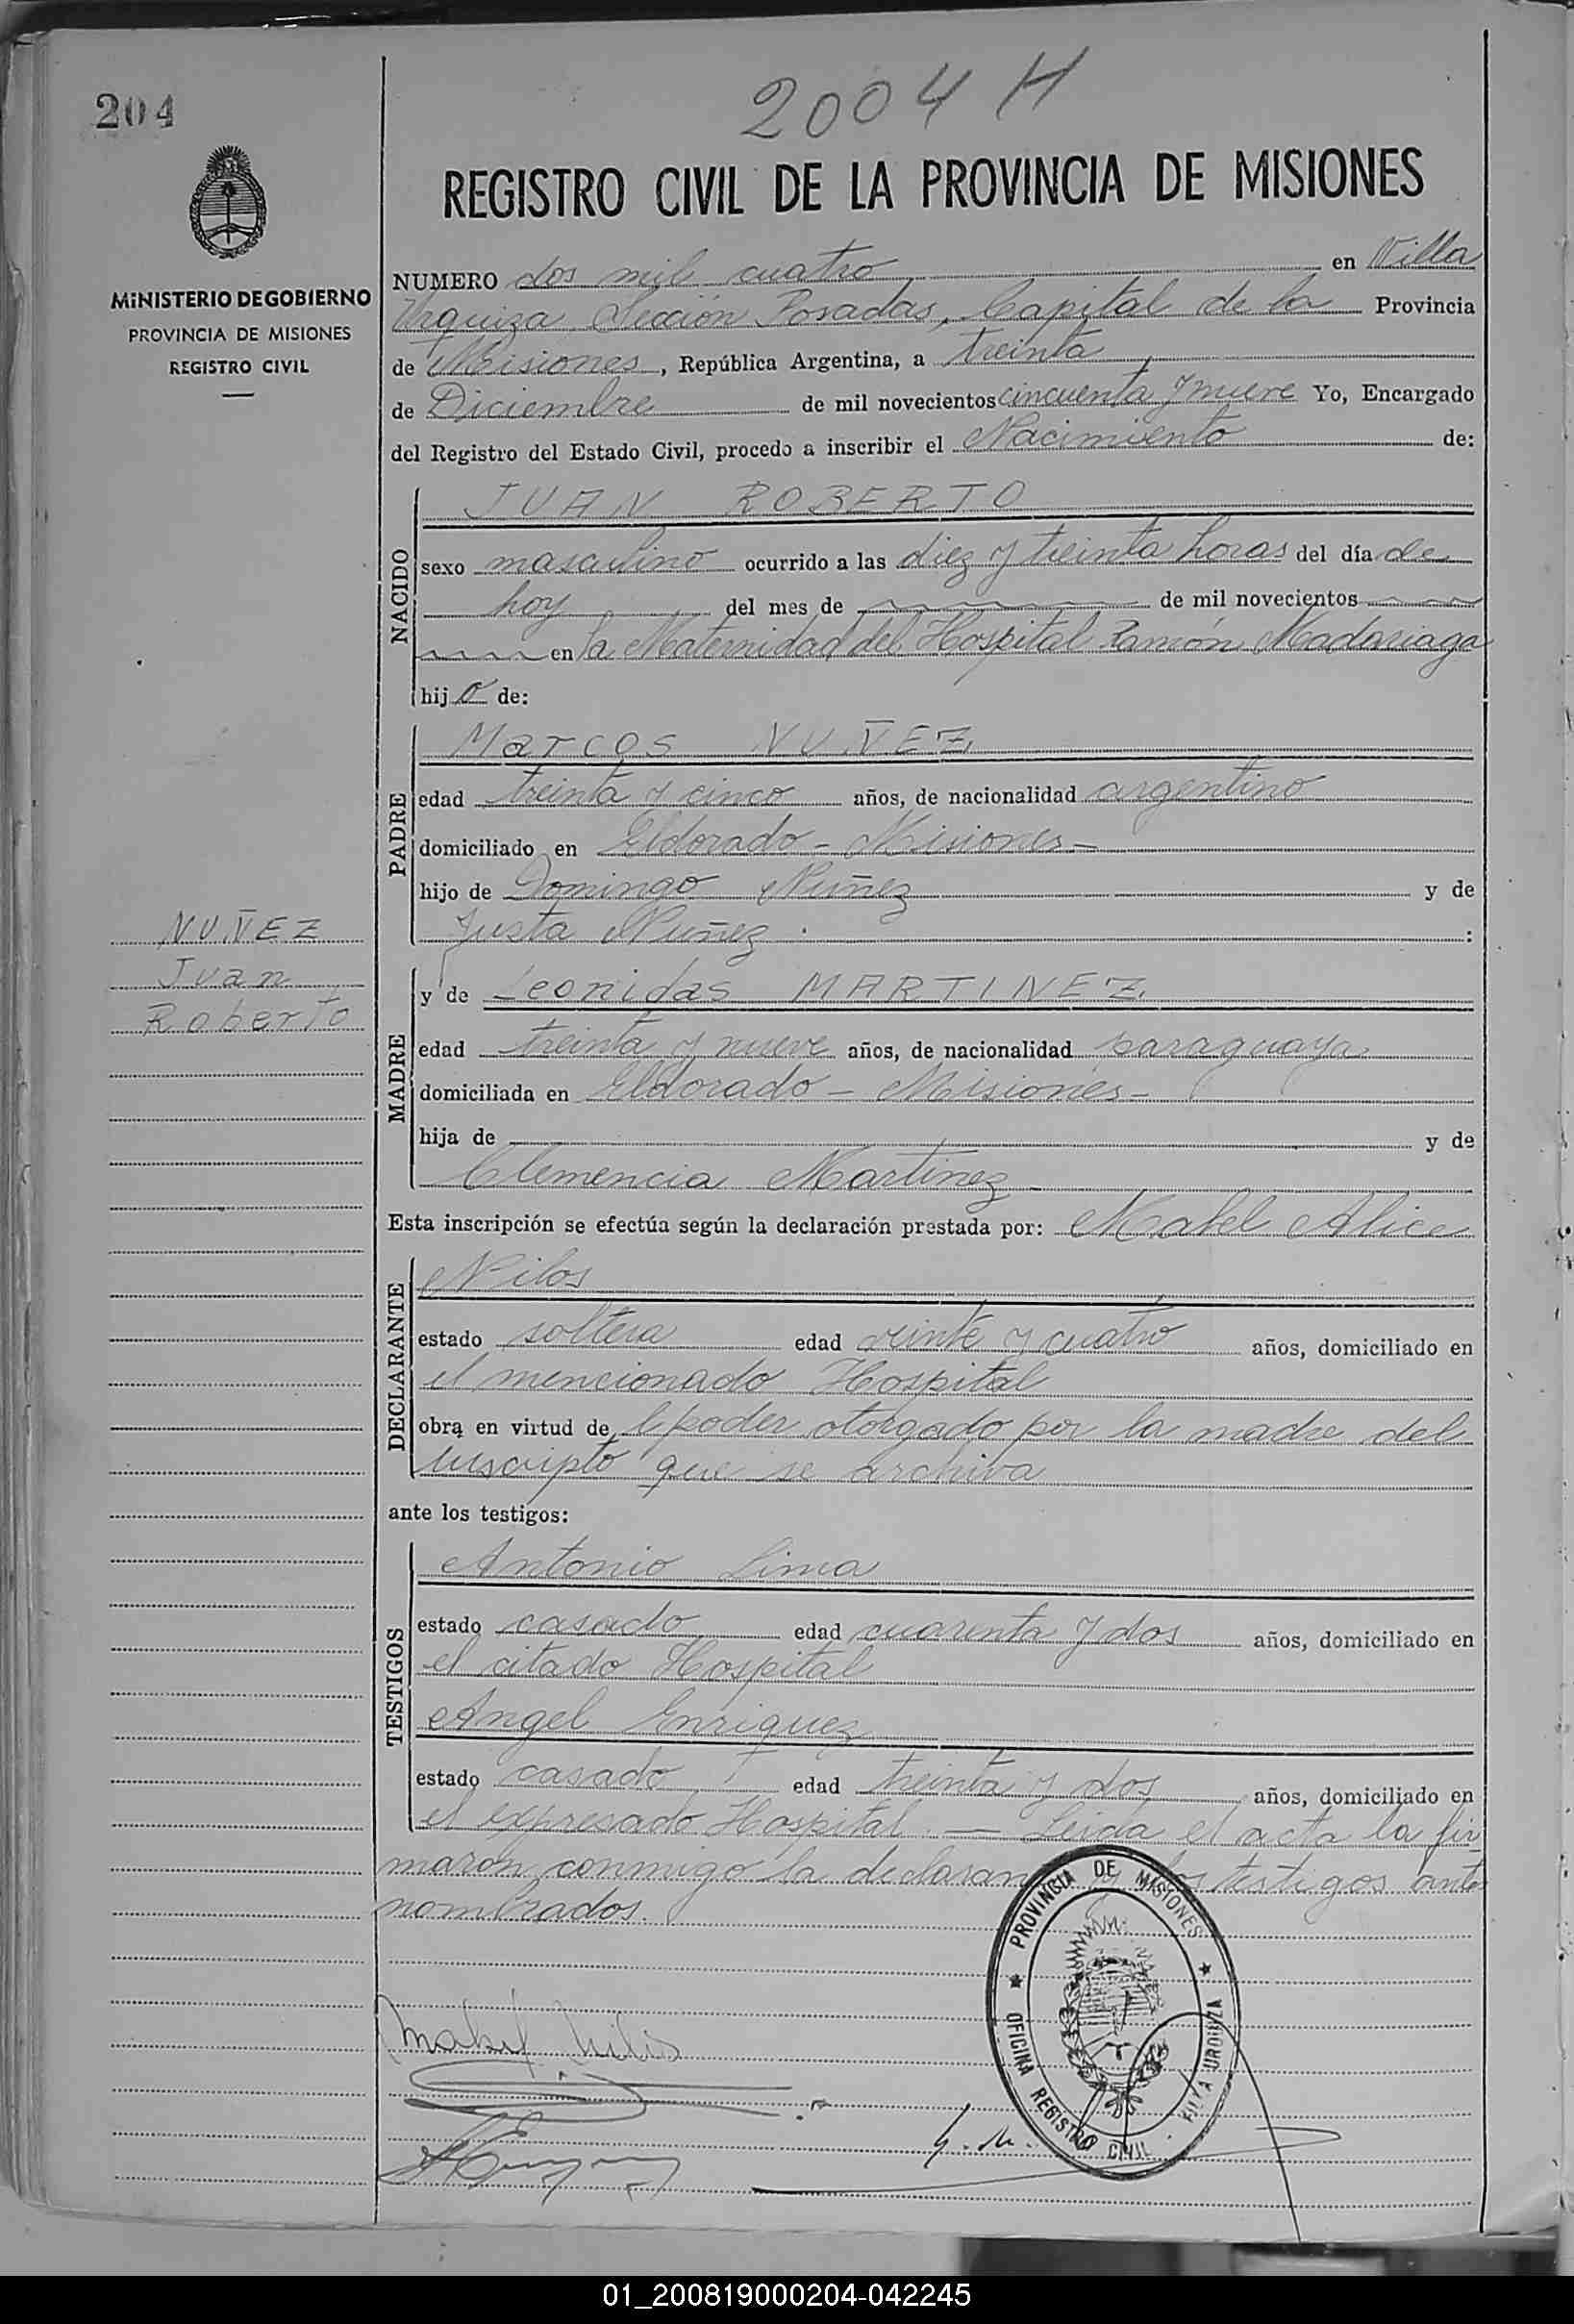 204
2004 H
MINISTERIO DE GOBIERNO
PROVINCIA DE MISIONES
REGISTRO CIVIL
REGISTRO CIVIL DE LA PROVINCIA DE MISIONES
NUMERO dos mil cuatro en Villa
Urquiza Sección Posadas, Capital de la Provincia
de Misiones, República Argentina, a treinta
de Diciembre de mil novecientos cincuenta y nueve Yo, Encargado
del Registro del Estado Civil, procedo a inscribir el Nacimiento de:
NACIDO
JUAN ROBERTO
sexo masculino ocurrido a las diez y treinta horas del día de
hoy del mes de de mil novecientos
en la Maternidad del Hospital Ramón Madariaga
hijo de:
PADRE
Marcos NUÑEZ
edad treinta y cinco años, de nacionalidad argentino
domiciliado en Eldorado - Misiones -
hijo de Domingo Nuñez y de
Justa Nuñez :
NUÑEZ
Juan
Roberto
MADRE
y de Leonidas MARTINEZ
edad treinta y nueve años, de nacionalidad paraguaya
domiciliada en Eldorado - Misiones -
hija de y de
Clemencia Martinez -
Esta inscripción se efectúa según la declaración prestada por: Mabel Alice
DECLARANTE
Nilos
estado soltera edad veinte y cuatro años, domiciliado en
el mencionado Hospital
obra en virtud de l poder otorgado por la madre del
inscripto que se archiva
ante los testigos:
TESTIGOS
Antonio Lima
estado casado edad cuarenta y dos años, domiciliado en
el citado Hospital
Angel Enriquez
estado casado edad treinta y dos años, domiciliado en
el expresado Hospital. — Leida el acta la fir
maron conmigo la declarante y los testigos antes
nombrados.
PROVINCIA DE MISIONES
OFICINA REGISTRO CIVIL VILLA URQUIZA
Mabel Nilos
01_200819000204-042245